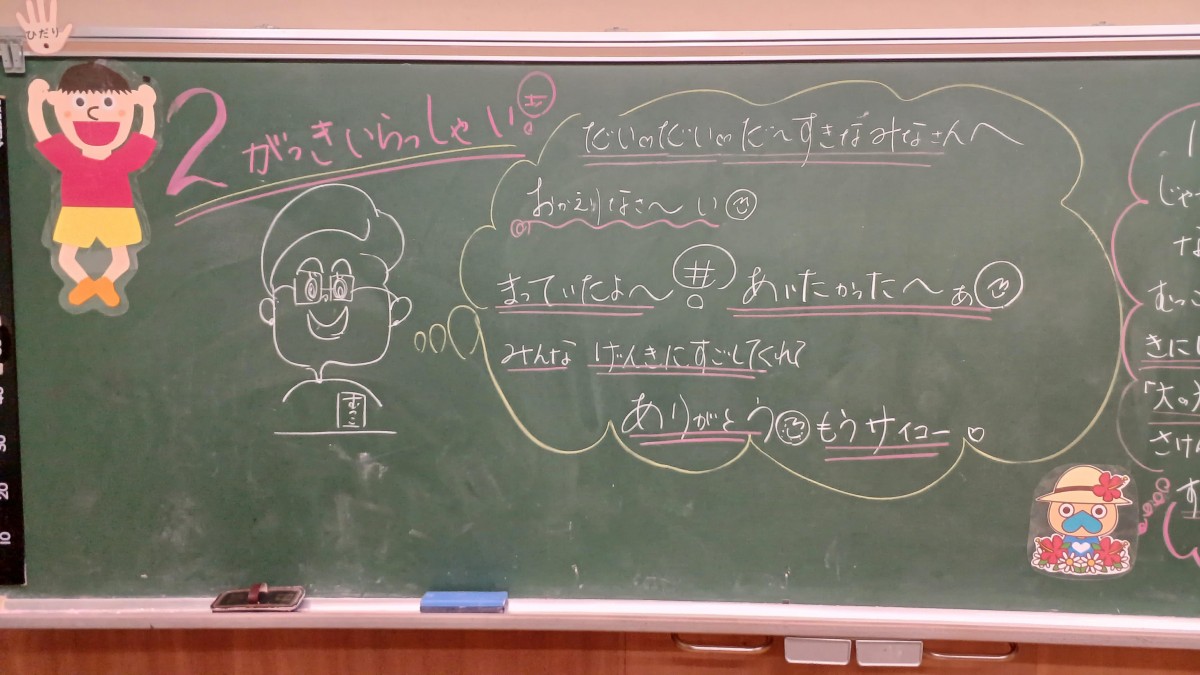 ひだり
2がっきいらっしゃい!
だいのだいのだ〜すきなみなさんへ
おかえりなさ〜い
まっていたよ〜! あいたかった〜ぁ
みんな げんきにすごしてくれて
ありがとう もうサイコー♡
むっこ
じゃー
な
むっこ
きにし
「大の
さけ
す
30
20
10